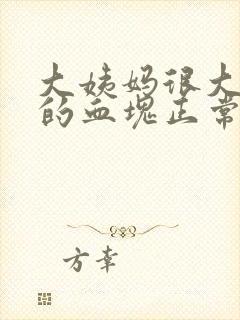 大姨妈很大
的血块正常
方幸